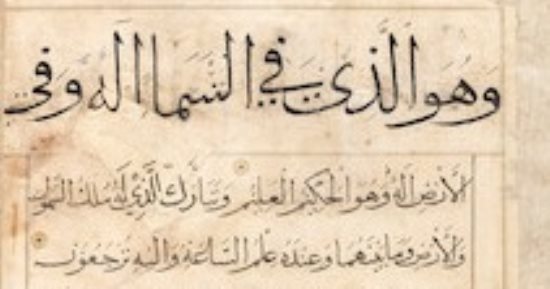 وَهُوَ الَّذِي فِي السَّمَا اِلَهٌ وَفِي
الْاَرْضِ اِلَهٌ وَهُوَ الْحَكِيمُ الْعَلِيمُ وَتَبَارَكَ الَّذِي لَهُ مُلْكُ السَّمَوَاتِ
وَالْاَرْضِ وَمَا بَيْنَهُمَا وَعِنْدَهُ عِلْمُ السَّاعَةِ وَاِلَيْهِ تُرْجَعُونَ